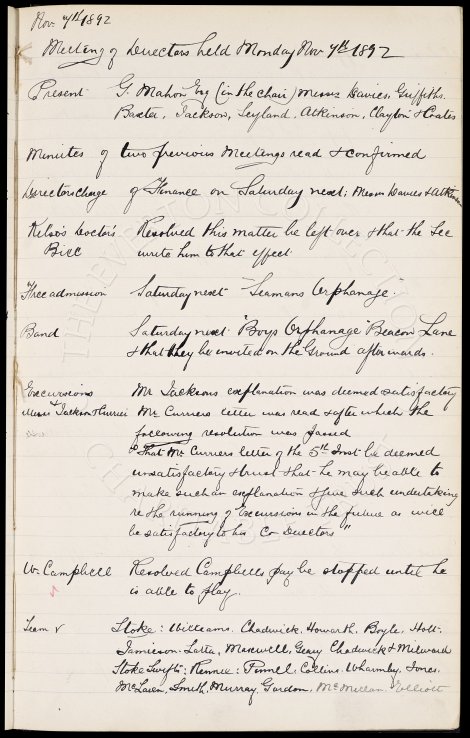 Nov. 7th 1892
Meeting of Directors held Monday Nov 7th 1892
Present G. Mahon Esq (in the chair) Messrs Davies, Griffiths,
Baxter, Jackson, Leyland, Atkinson, Clayton & Coates
Minutes of two previous Meetings read & confirmed
Directors charge of Finance on Saturday next; Messrs Davies & Atkinson
Kelso's Doctor's Resolved this matter be left over & that the Sec
Bill write him to that effect
Free admission Saturday next "Seamans Orphanage"
Band Saturday next "Boys Orphanage" Beacon Lane
& that they be invited on the Ground afterwards.
Excursions Mr Jacksons explanation was deemed satisfactory
Messrs Jackson & Currier Mr Curriers letter was read & after which the
following resolution was passed
"That Mr Curriers letter of the 5th Inst be deemed
unsatisfactory & trust that he may be able to
make such an explanation & give such undertaking
re the running of Excursions in the future as will
be satisfactory to his Co Directors"
W. Campbell Resolved Campbells pay be stopped until he
is able to play.
Team v Stoke: Williams. Chadwick, Howarth, Boyle, Holt.
Jamieson. Latta, Maxwell, Geary Chadwick & Milward
Stoke Swifts: Rennie: Pinnell, Collins, Wharmby, Jones,
McLaren, Smith, Murray Gordon, McMillan Elliott